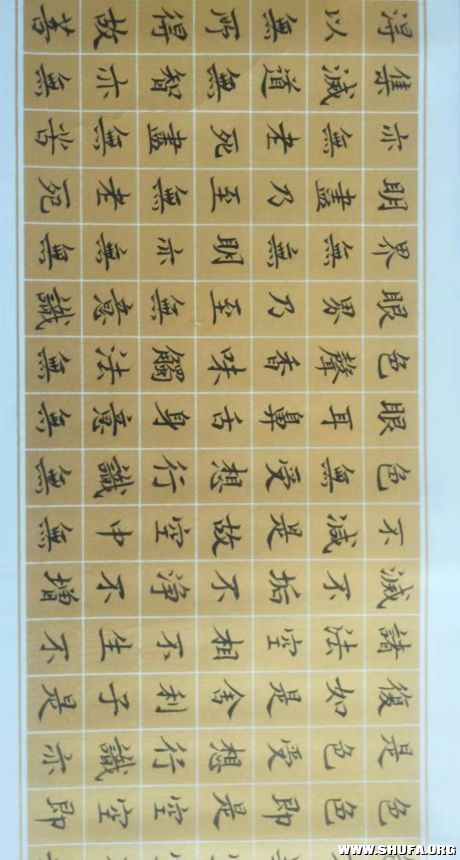 色色即是空空即
是色受想行識亦
復如是舍利子是
諸法空相不生不
滅不垢不淨不增
不減是故空中無
色無受想行識無
眼耳鼻舌身意無
色聲香味觸法無
眼界乃至無意識
界無無明亦無無
明盡乃至無老死
亦無老死盡無苦
集滅道無智亦無
得以無所得故菩
WWW.SHUFA.ORG